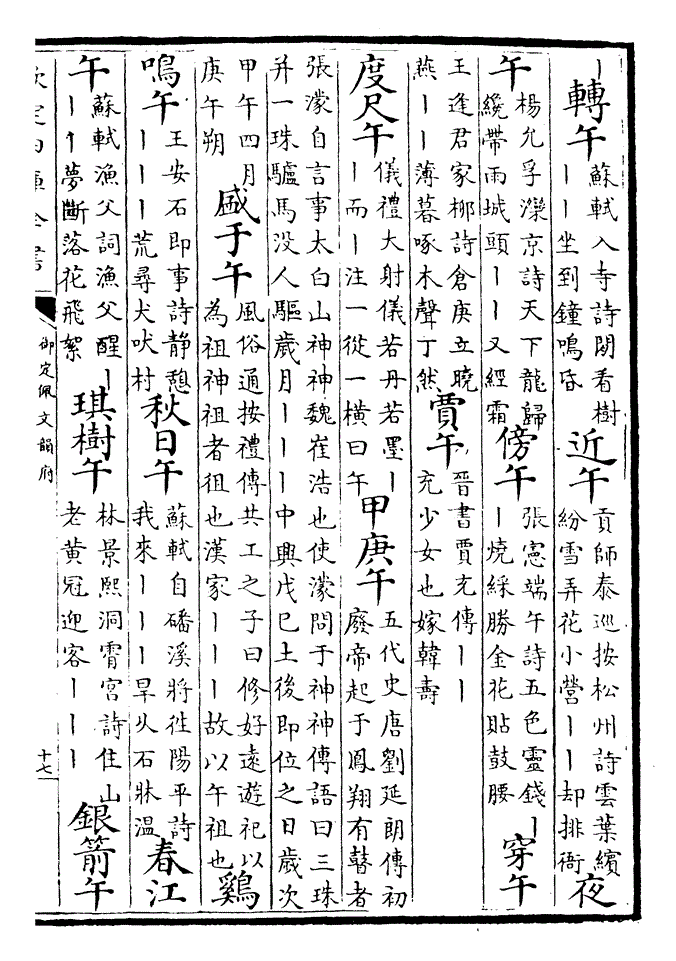 丨轉午蘇軾入寺詩閑看樹丨丨坐到鐘鳴昏近午貢師泰廵按松州詩雲葉繽紛雪弄花小營丨丨却排衙夜
午楊允孚灤京詩天下龍歸纔帶雨城頭丨丨又經霜傍午張憲端午詩五色靈錢丨丨燒綵勝金花貼鼓腰穿午
王逢君家栁詩倉庚立曉燕丨丨薄暮啄木聲丁然賈午晉書賈充傳丨丨充少女也嫁韓壽
度尺午儀禮大射儀若丹若墨丨丨而丨注一從一橫曰午甲庚午五代史唐劉延朗傳初廢帝起于鳳翔有瞽者
張濛自言事太白山神神魏崔浩也使濛問于神神傳語曰三珠并一珠驢馬没人驅歲月丨丨丨中興戊巳土後即位之日歲次
甲午四月庚午朔盛于午風俗通按禮傳共工之子曰修好遠遊祀以為祖神祖者徂也漢家丨丨丨故以午祖也鷄
鳴午王安石即事詩静憩丨丨丨荒尋犬吠村秋日午蘇軾自磻溪將徃陽平詩我來丨丨丨旱乆石牀温春江
午蘇軾漁父詞漁父醒丨丨丨夢斷落花飛絮琪樹午林景熙洞霄宫詩住山老黄冠迎客丨丨丨銀箭午
欽定四庫全書
御定佩文韻府
十七